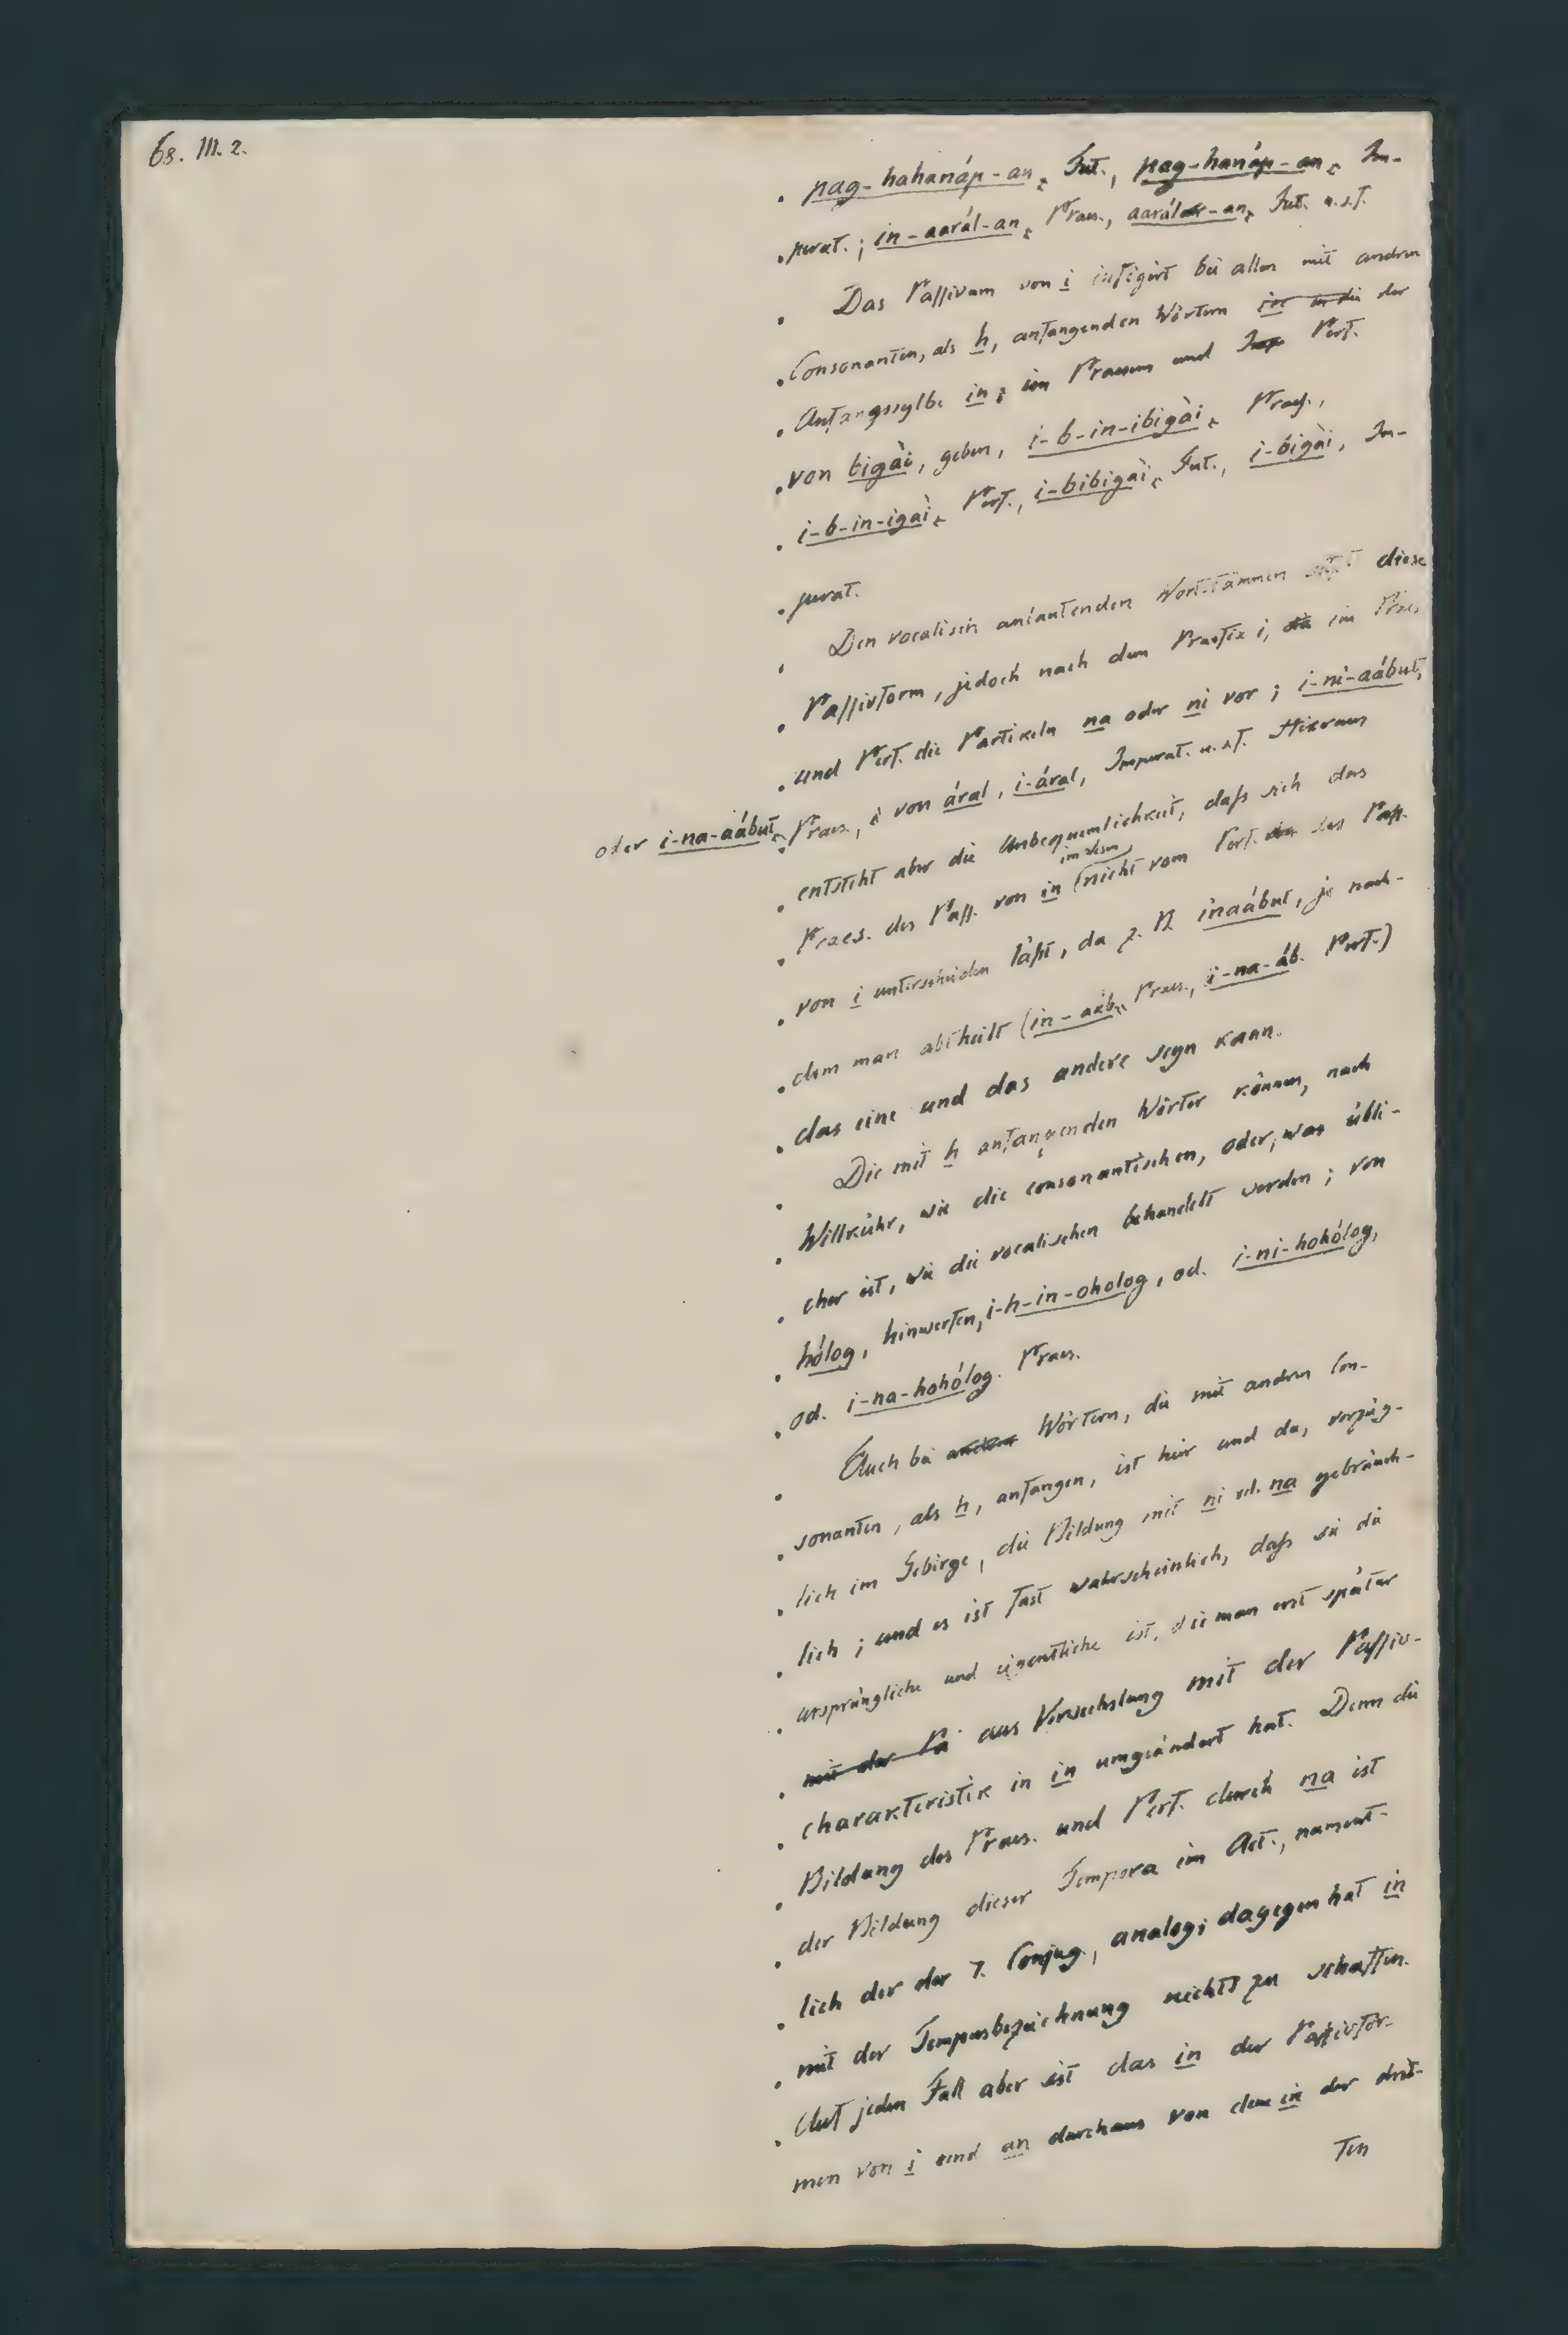 68. III. 2.
pag-hahanáp-an, Fut., pag-hanáp-an, Im-
perat.; in-aarál-an, Praes., aarál-an, Fut. u.s.f.
Das Passivum von i infigirt bei allen mit andren
Consonanten, als h, anfangenden Wörtern der
Anfangssylbe in, im Praesens und Perf.
von bigài, geben, i-b-in-ibigài, Praes.,
i-b-in-igài, Perf., i-bibigài, Fut., i-bigài, Im-
perat.
Den vocalisch anlautenden Wortstämmen setzt diese
Passivform, jedoch nach dem Praefix i, im Praes.
und Perf. die Partikeln na oder ni vor; i-ni-aábut,
oder i-na-aábut, Praes., von áral, i-áral, Imperat. u.s.f. Hieraus
entsteht aber die Unbequemlichkeit, daß sich das
Praes. des Pass. von in (nicht vom Perf. des Pass.
von i unterscheiden läßt, da z. B. inaábut, je nach-
dem man abtheilt (in-aáb., Praes., i-na-áb. Perf.)
das eine und das andere seyn kann.
Die mit h anfangenden Wörter können, nach
Willkühr, wie die consonantischen, oder, was übli-
cher ist, wie die vocalischen behandelt werden; von
hólog, hinwerfen, i-h-in-oholog, od. i-ni-hohólog,
od. i-na-hohólog. Praes.
Auch bei Wörtern, die mit andren Con-
sonanten, als h, anfangen, ist hier und da, vorzüg-
lich im Gebirge, die Bildung mit ni od. na gebräuch-
lich; und es ist fast wahrscheinlich, daß sie die
ursprüngliche und eigentliche ist, die man erst später
mit der Pa aus Verwechslung mit der Passiv-
charakteristik in in umgeändert hat. Denn die
Bildung des Praes. und Perf. durch na ist
der Bildung dieser Tempora im Act., nament-
lich der der 7. Conjug., analog; dagegen hat in
mit der Tempusbezeichnung nichts zu schaffen.
Auf jeden Fall aber ist das in der Passivfor-
men von i und an durchaus von dem in der drit-
ten